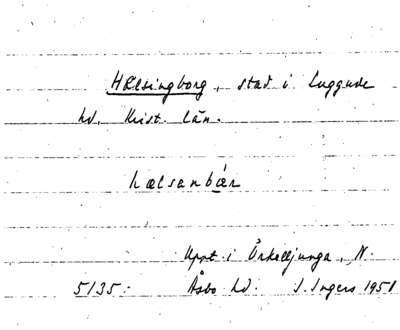 Hälsingborg, stad i Luggude
hd. Krist. län.
hælsanbär
Uppt. i Örkelljunga, N.
5135: Åsbo hd. I. Ingers 1951